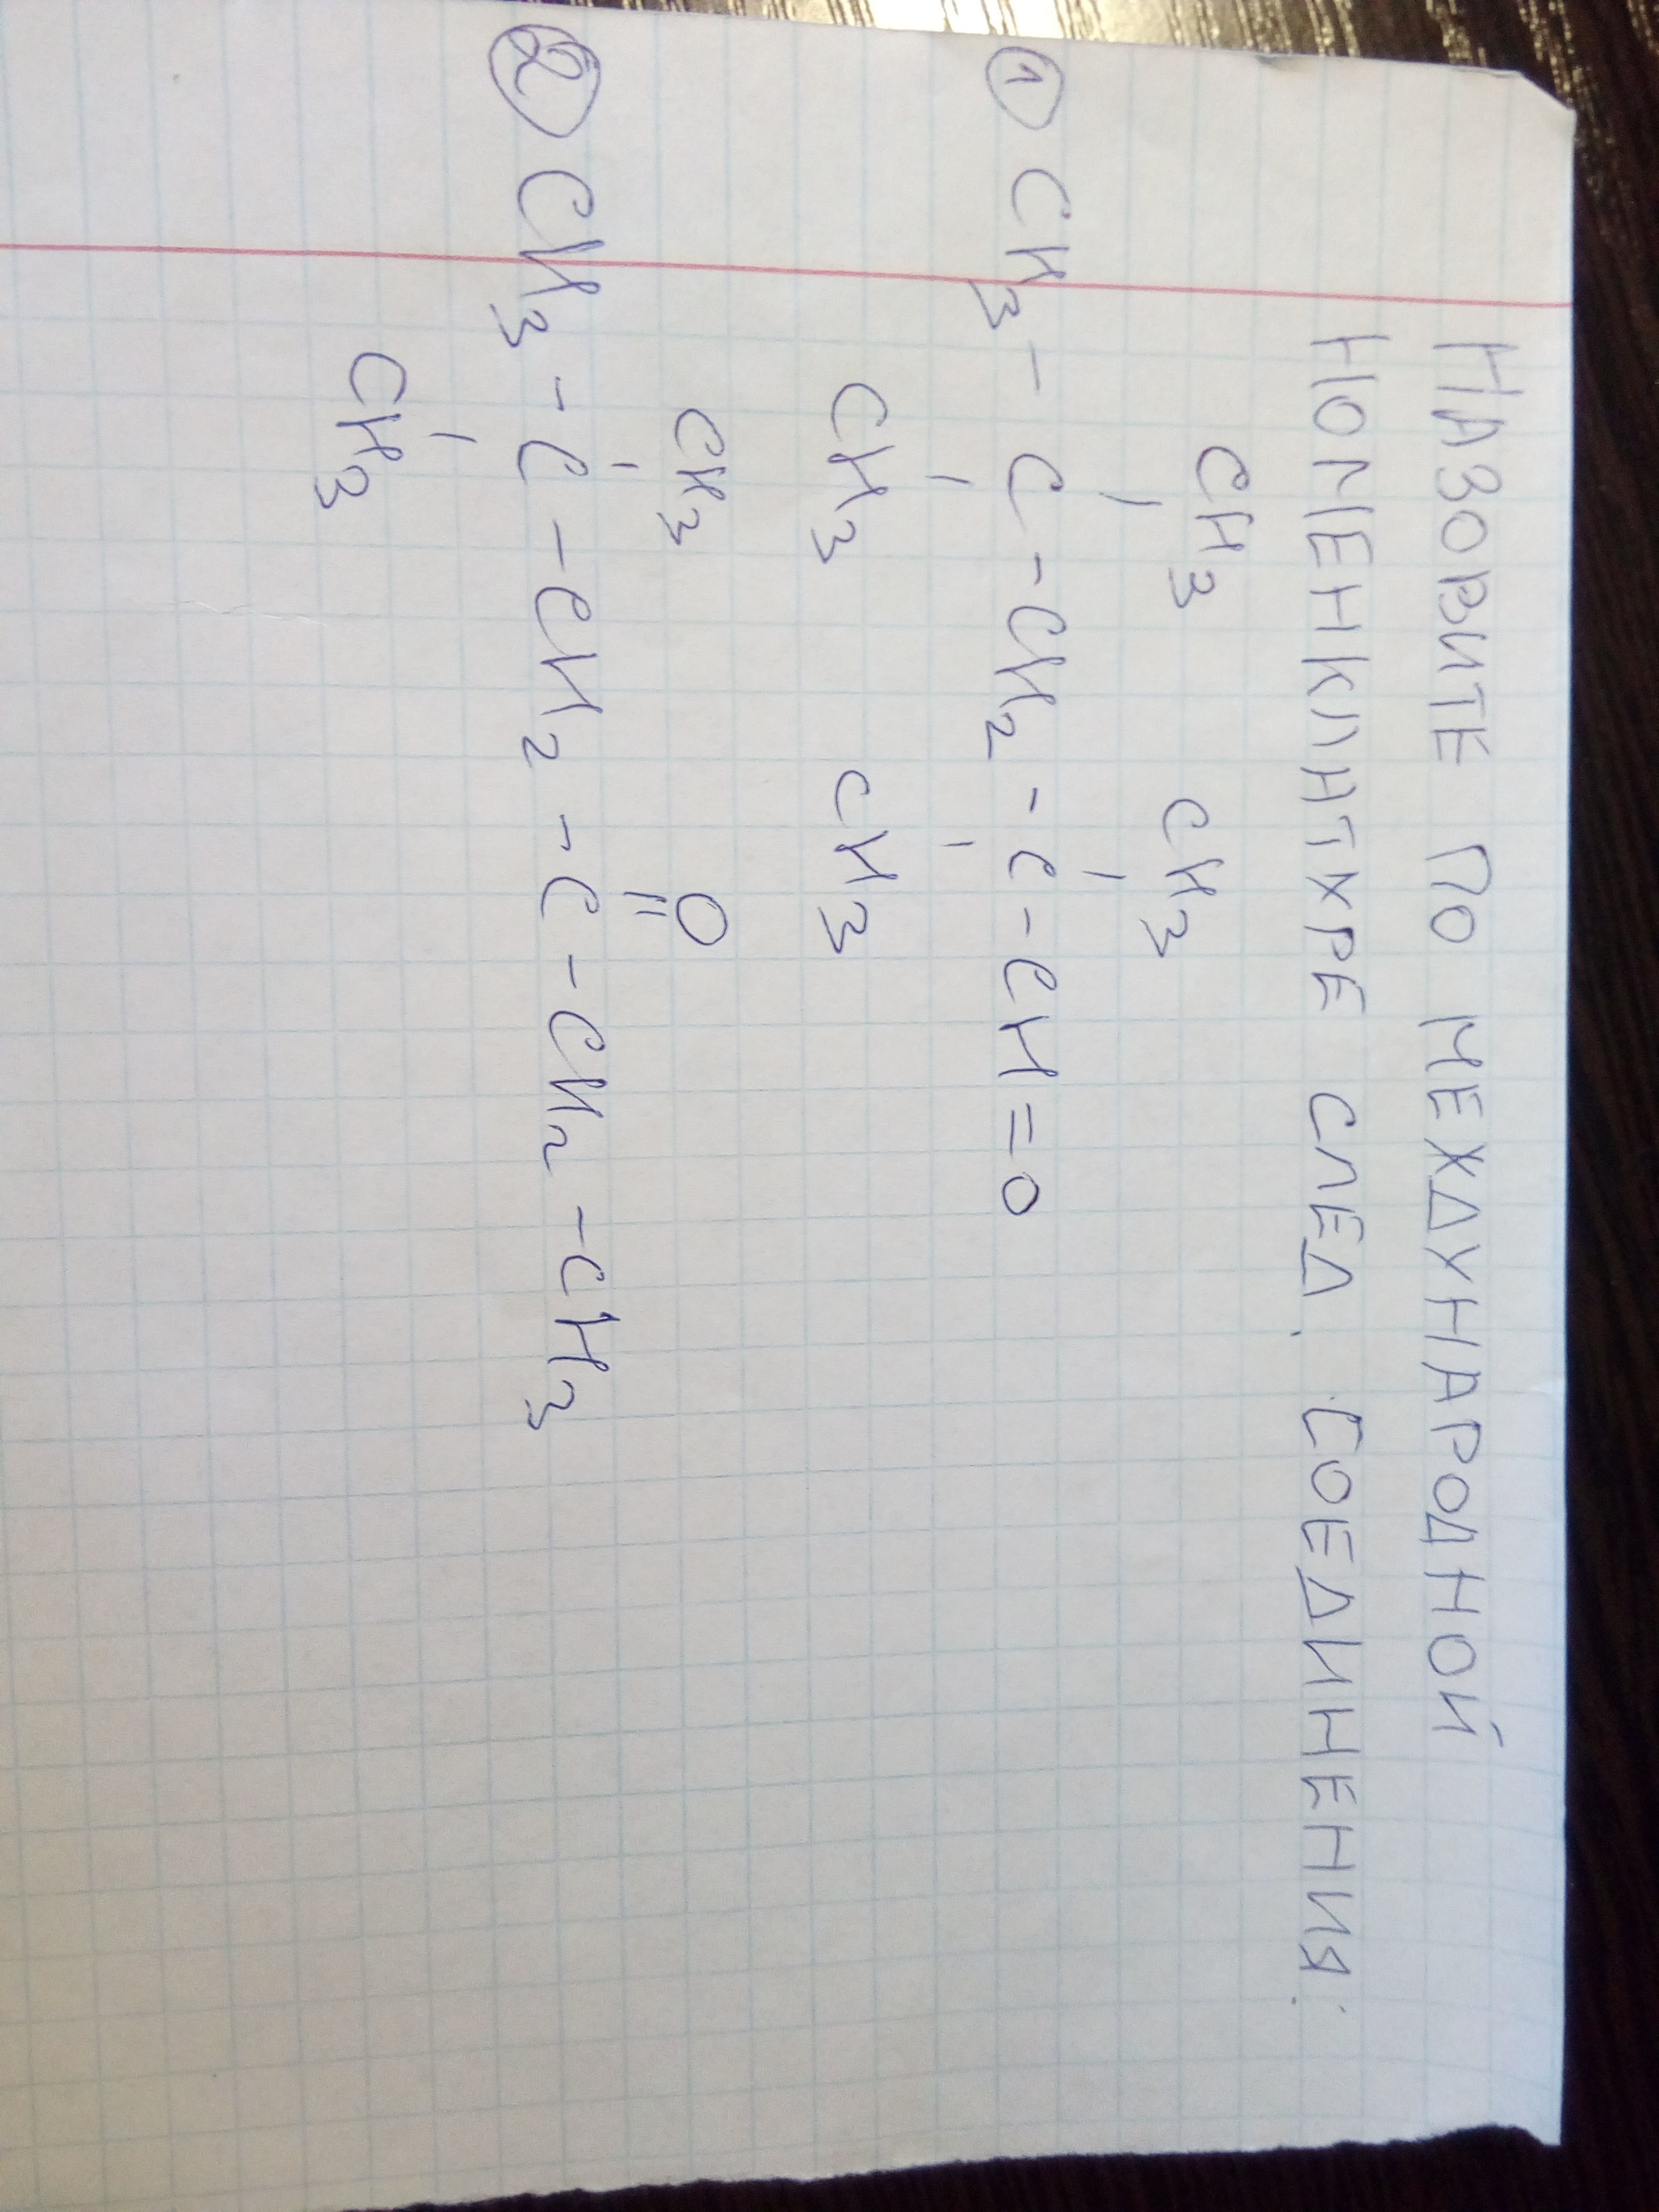 НАЗОВИТЕ ПО МЕЖДУНАРОДНОЙ
НОМЕНКЛАТУРЕ СЛЕД. СОЕДИНЕНИЯ:
CH3 CH3
① CH3 - C - CH2 - C - CH = O
CH3 CH3
CH3 O
② CH3 - C - CH2 - C - CH2 - CH3
CH3